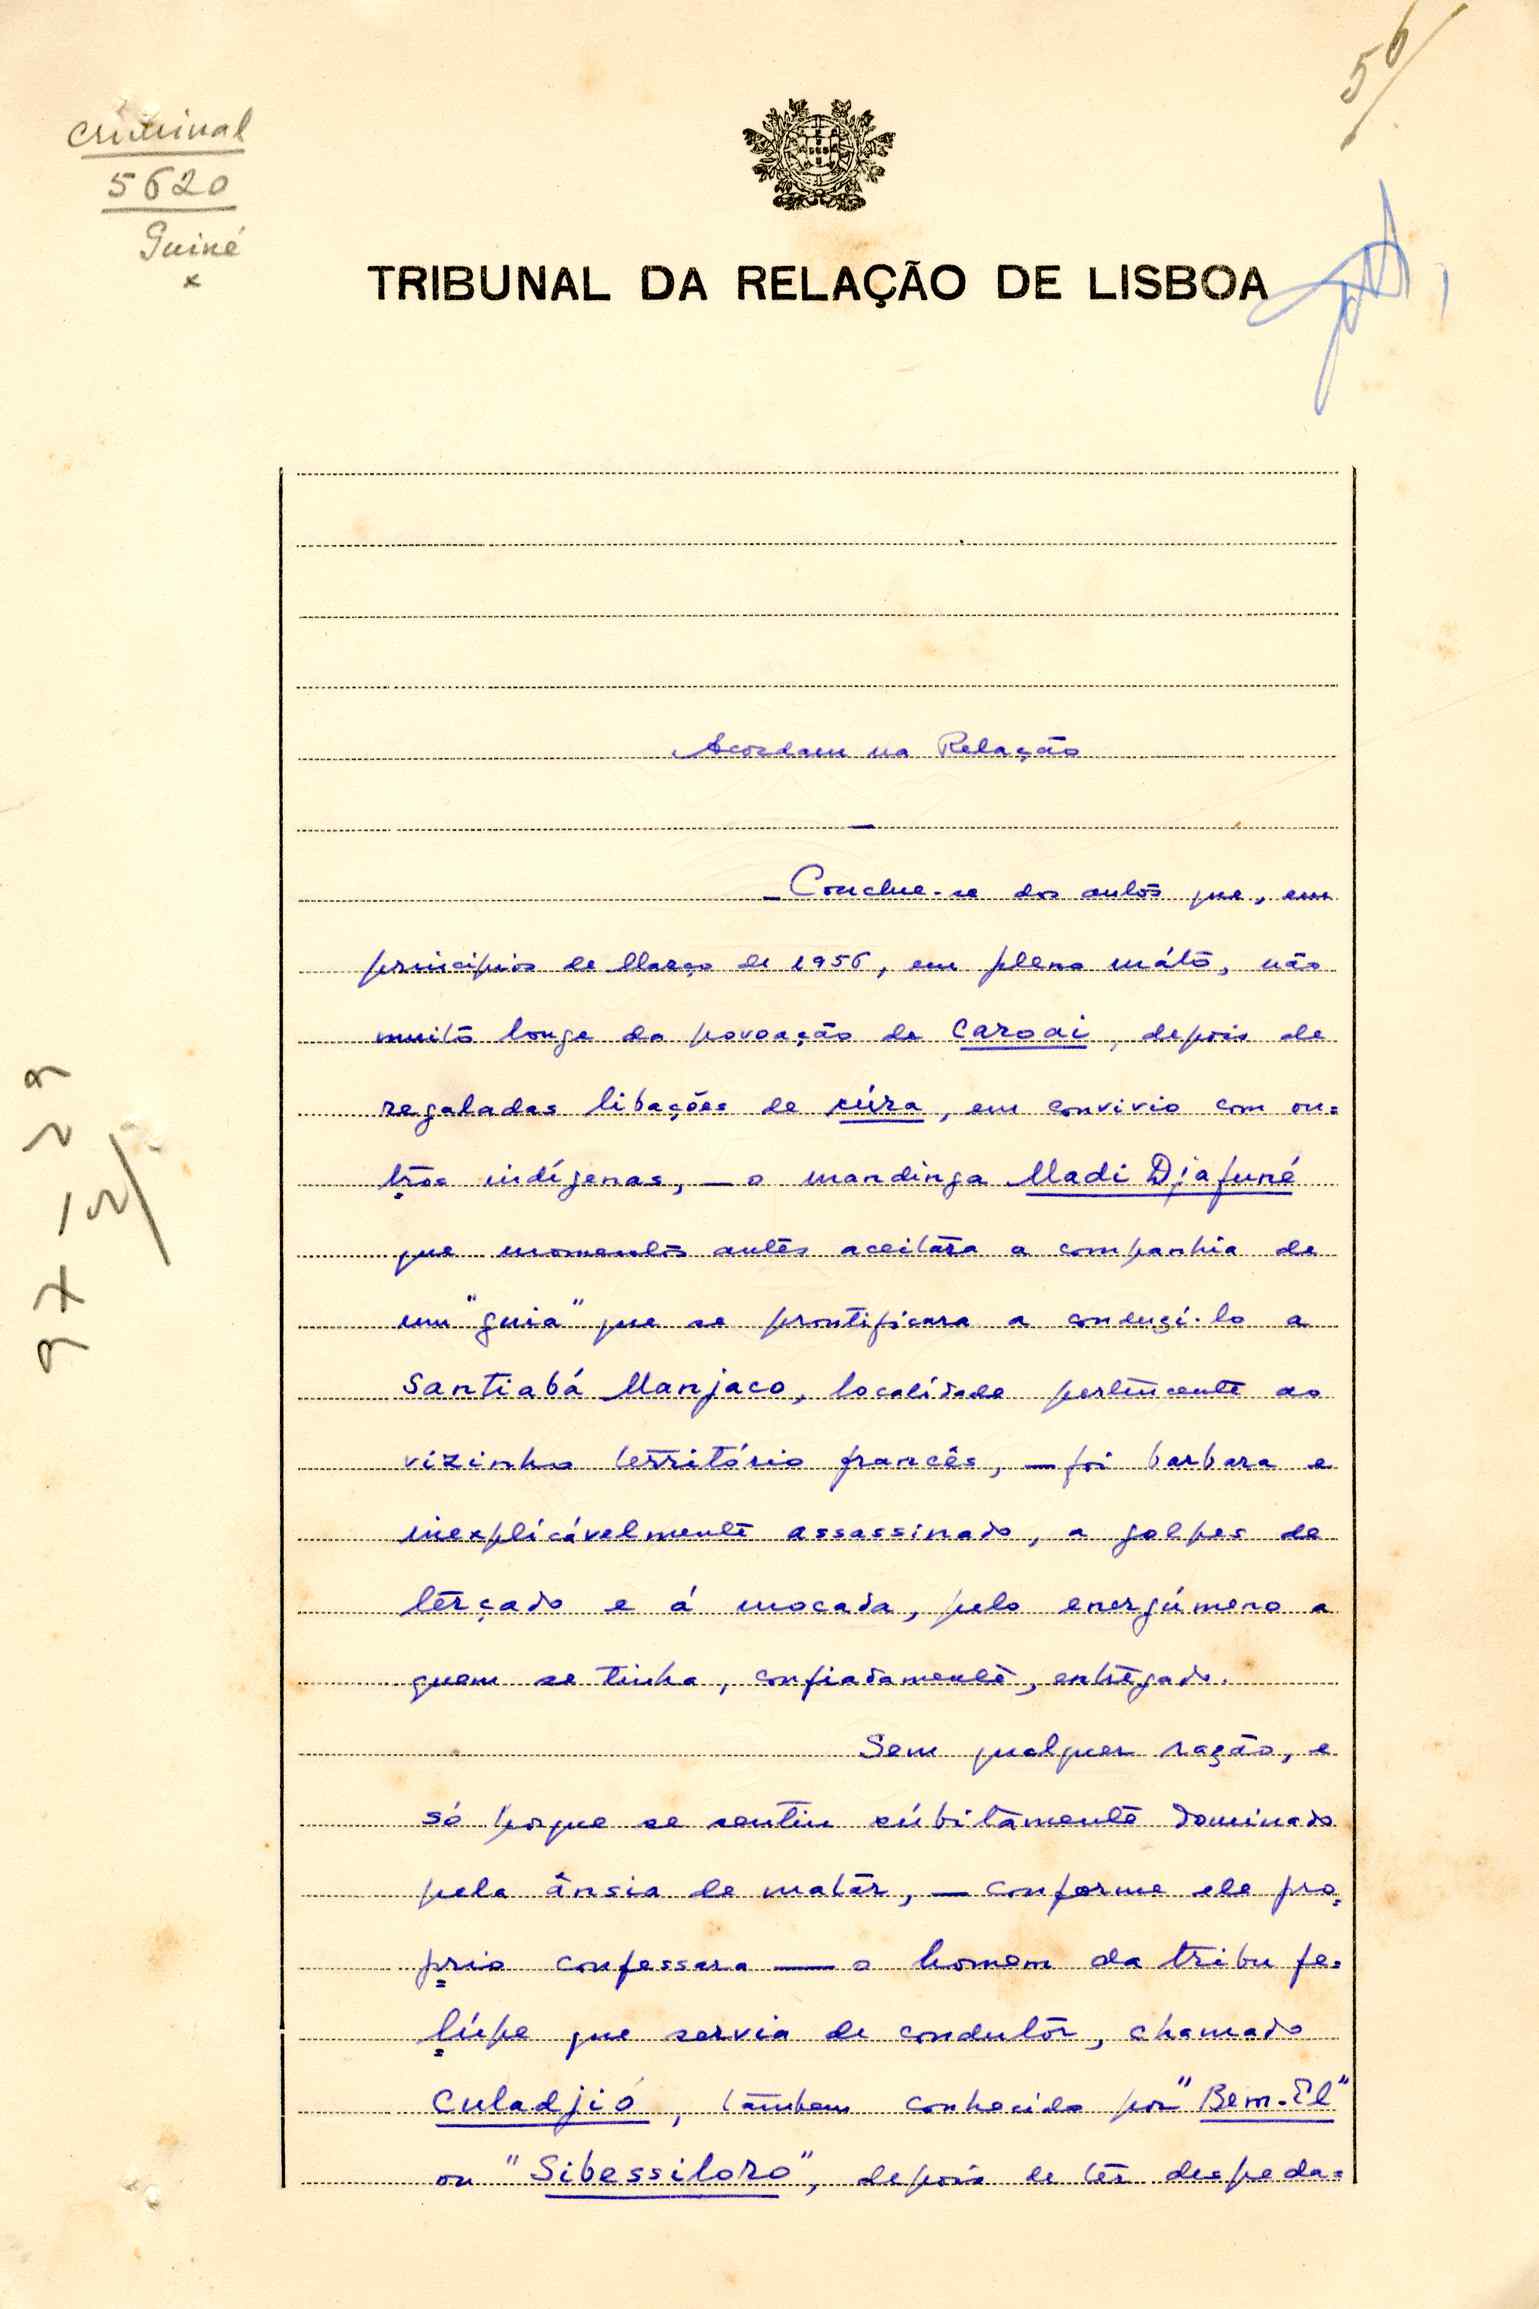 56
Criminal
5620
Guiné
x
TRIBUNAL DA RELAÇÃO DE LISBOA
Acordam na Relação
—
— Conclue-se dos autos que, em
principios de Março de 1956, em pleno máto, não
muito longe da povoação de Caroai, depois de
regaladas libações de súra, em convivio com ou=
tros indígenas, — o mandinga Madi Djafuné
que momentos antes aceitára a companhia de
um "guia" que se prontificara a conduzi-lo a
Santiabá Manjaco, localidade pertencente ao
vizinho território francês, — foi barbara e
inexplicávelmente assassinado, a golpes de
terçado e á mocada, pelo energúmeno a
quem se tinha, confiadamente, entregado.
Sem qualquer razão, e
só porque se sentiu súbitamente dominado
pela ânsia de matar, — conforme ele pro=
prio confessara — o homem da tribu fe=
lúpe que servia de condutor, chamado
Culadjió, tambem conhecido por "Bem-El"
ou "Sibessiloro", depois de ter despeda=